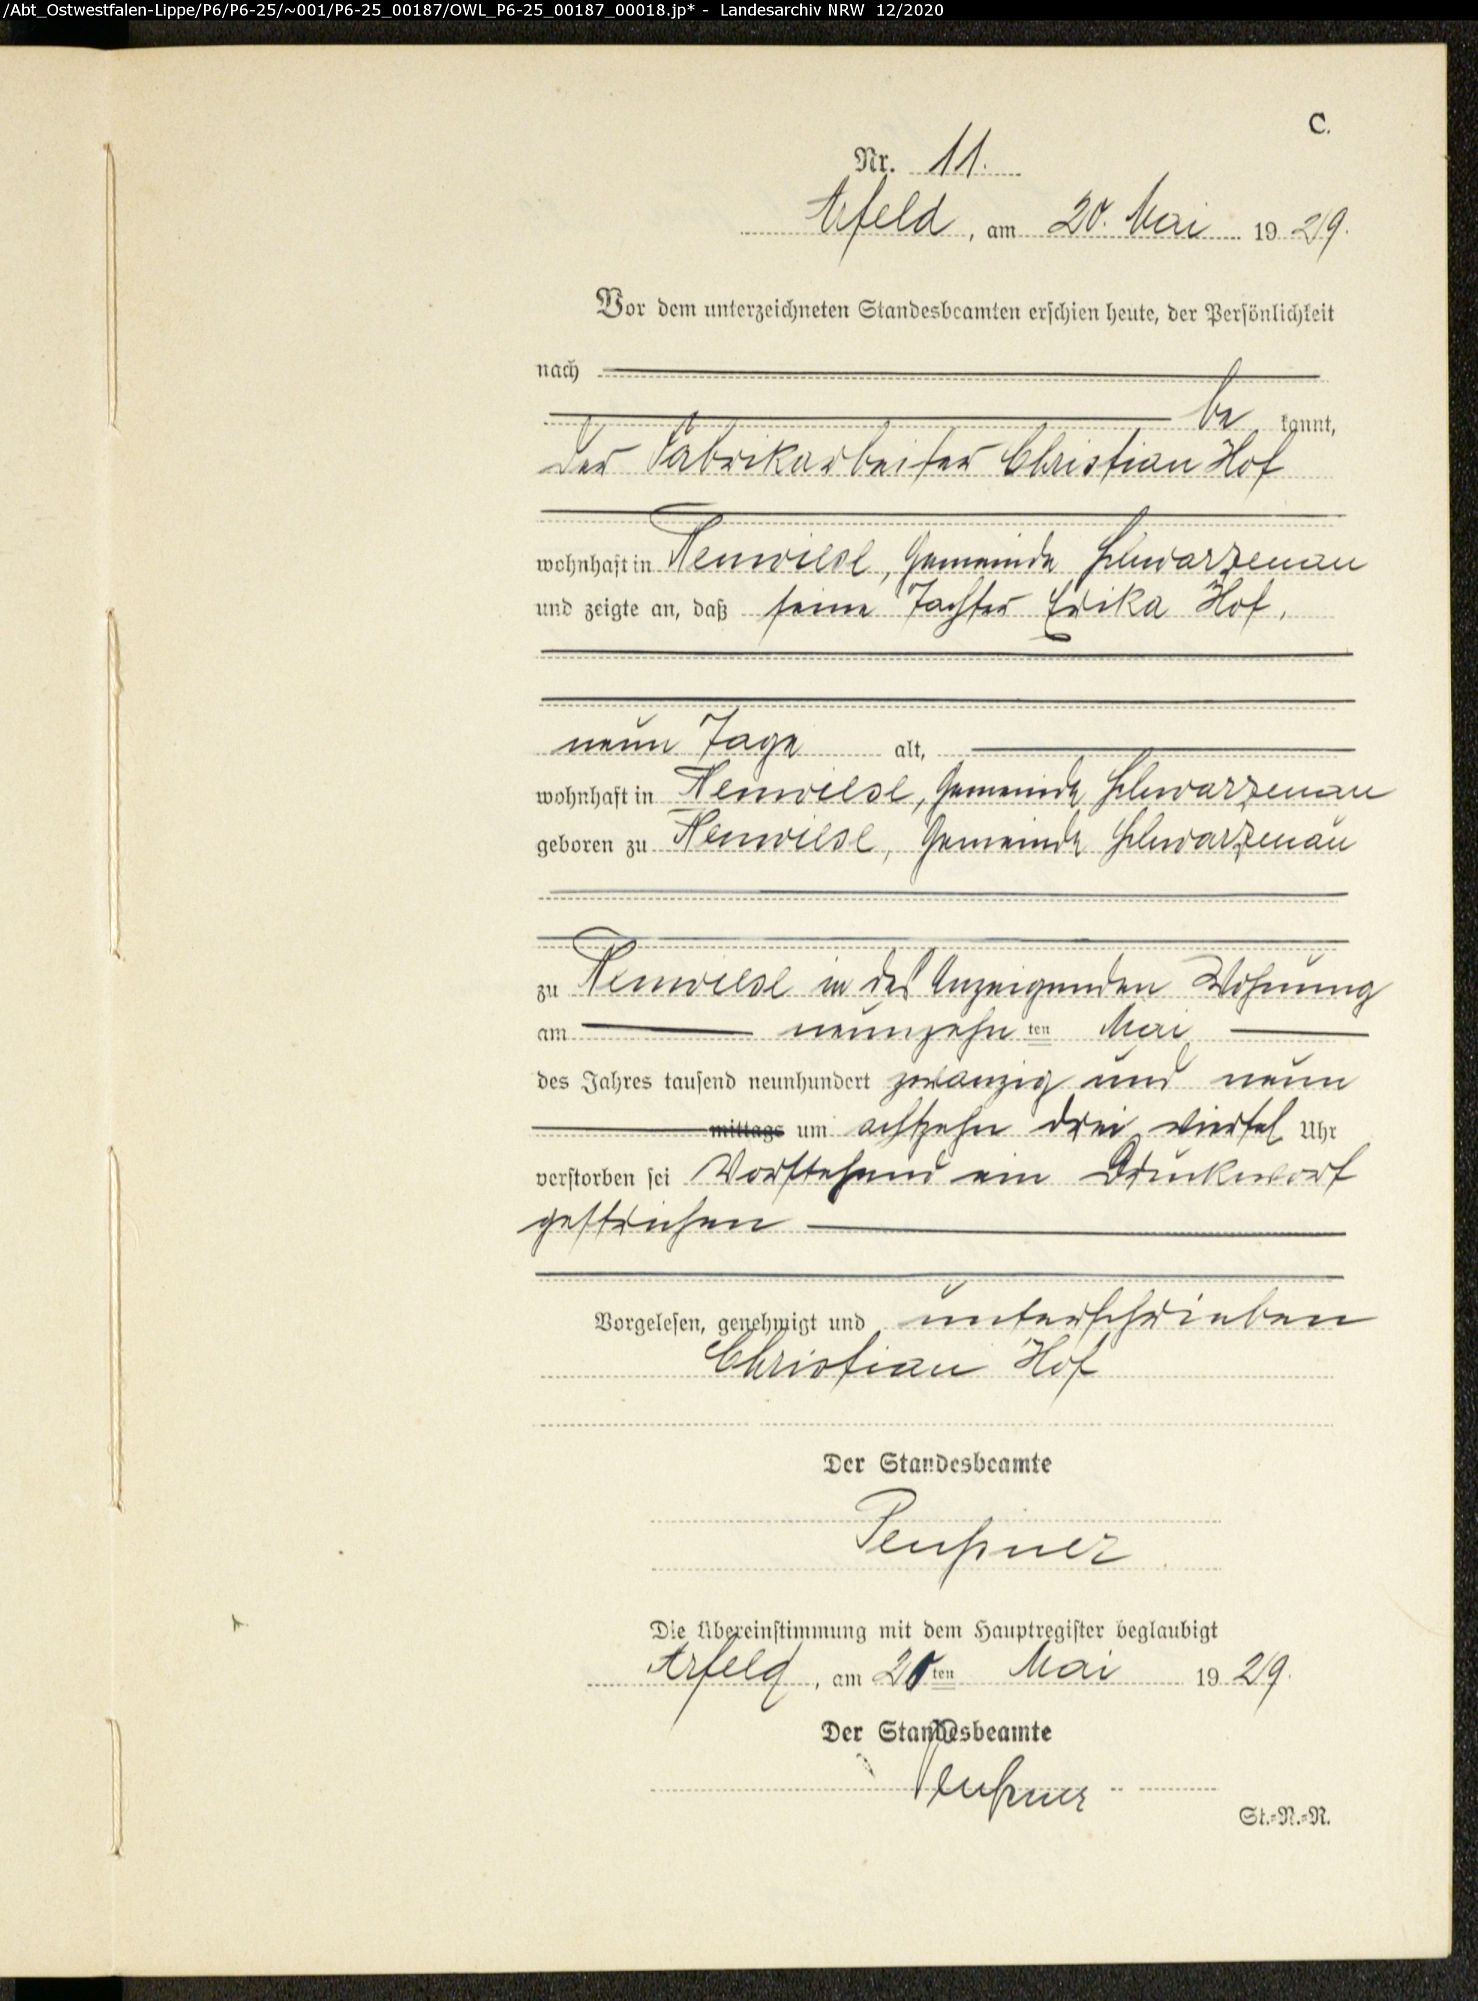 /Abt_Ostwestfalen-Lippe/P6/P6-25/~001/P6-25_00187/OWL_P6-25_00187_00018.jp* - Landesarchiv NRW 12/2020
C.
Nr. 11.
Arfeld, am 20. Mai 1929.
Vor dem unterzeichneten Standesbeamten erschien heute, der Persönlichkeit
nach
be kannt,
der Fabrikarbeiter Christian Hof
wohnhaft in Neuwiese, Gemeinde Schwarzenau
und zeigte an, daß seine Tochter Erika Hof,
neun Tage alt,
wohnhaft in Neuwiese, Gemeinde Schwarzenau
geboren zu Neuwiese, Gemeinde Schwarzenau
zu Neuwiese in des Anzeigenden Wohnung
am neunzehn ten Mai
des Jahres tausend neunhundert zwanzig und neun
mittags um achtzehn drei viertel Uhr
verstorben sei Vorstehend ein Druckwort
gestrichen
Vorgelesen, genehmigt und unterschrieben
Christian Hof
Der Standesbeamte
Die Übereinstimmung mit dem Hauptregister beglaubigt
Arfeld, am 20ten Mai 1929.
Der Standesbeamte
St.=N.=R.